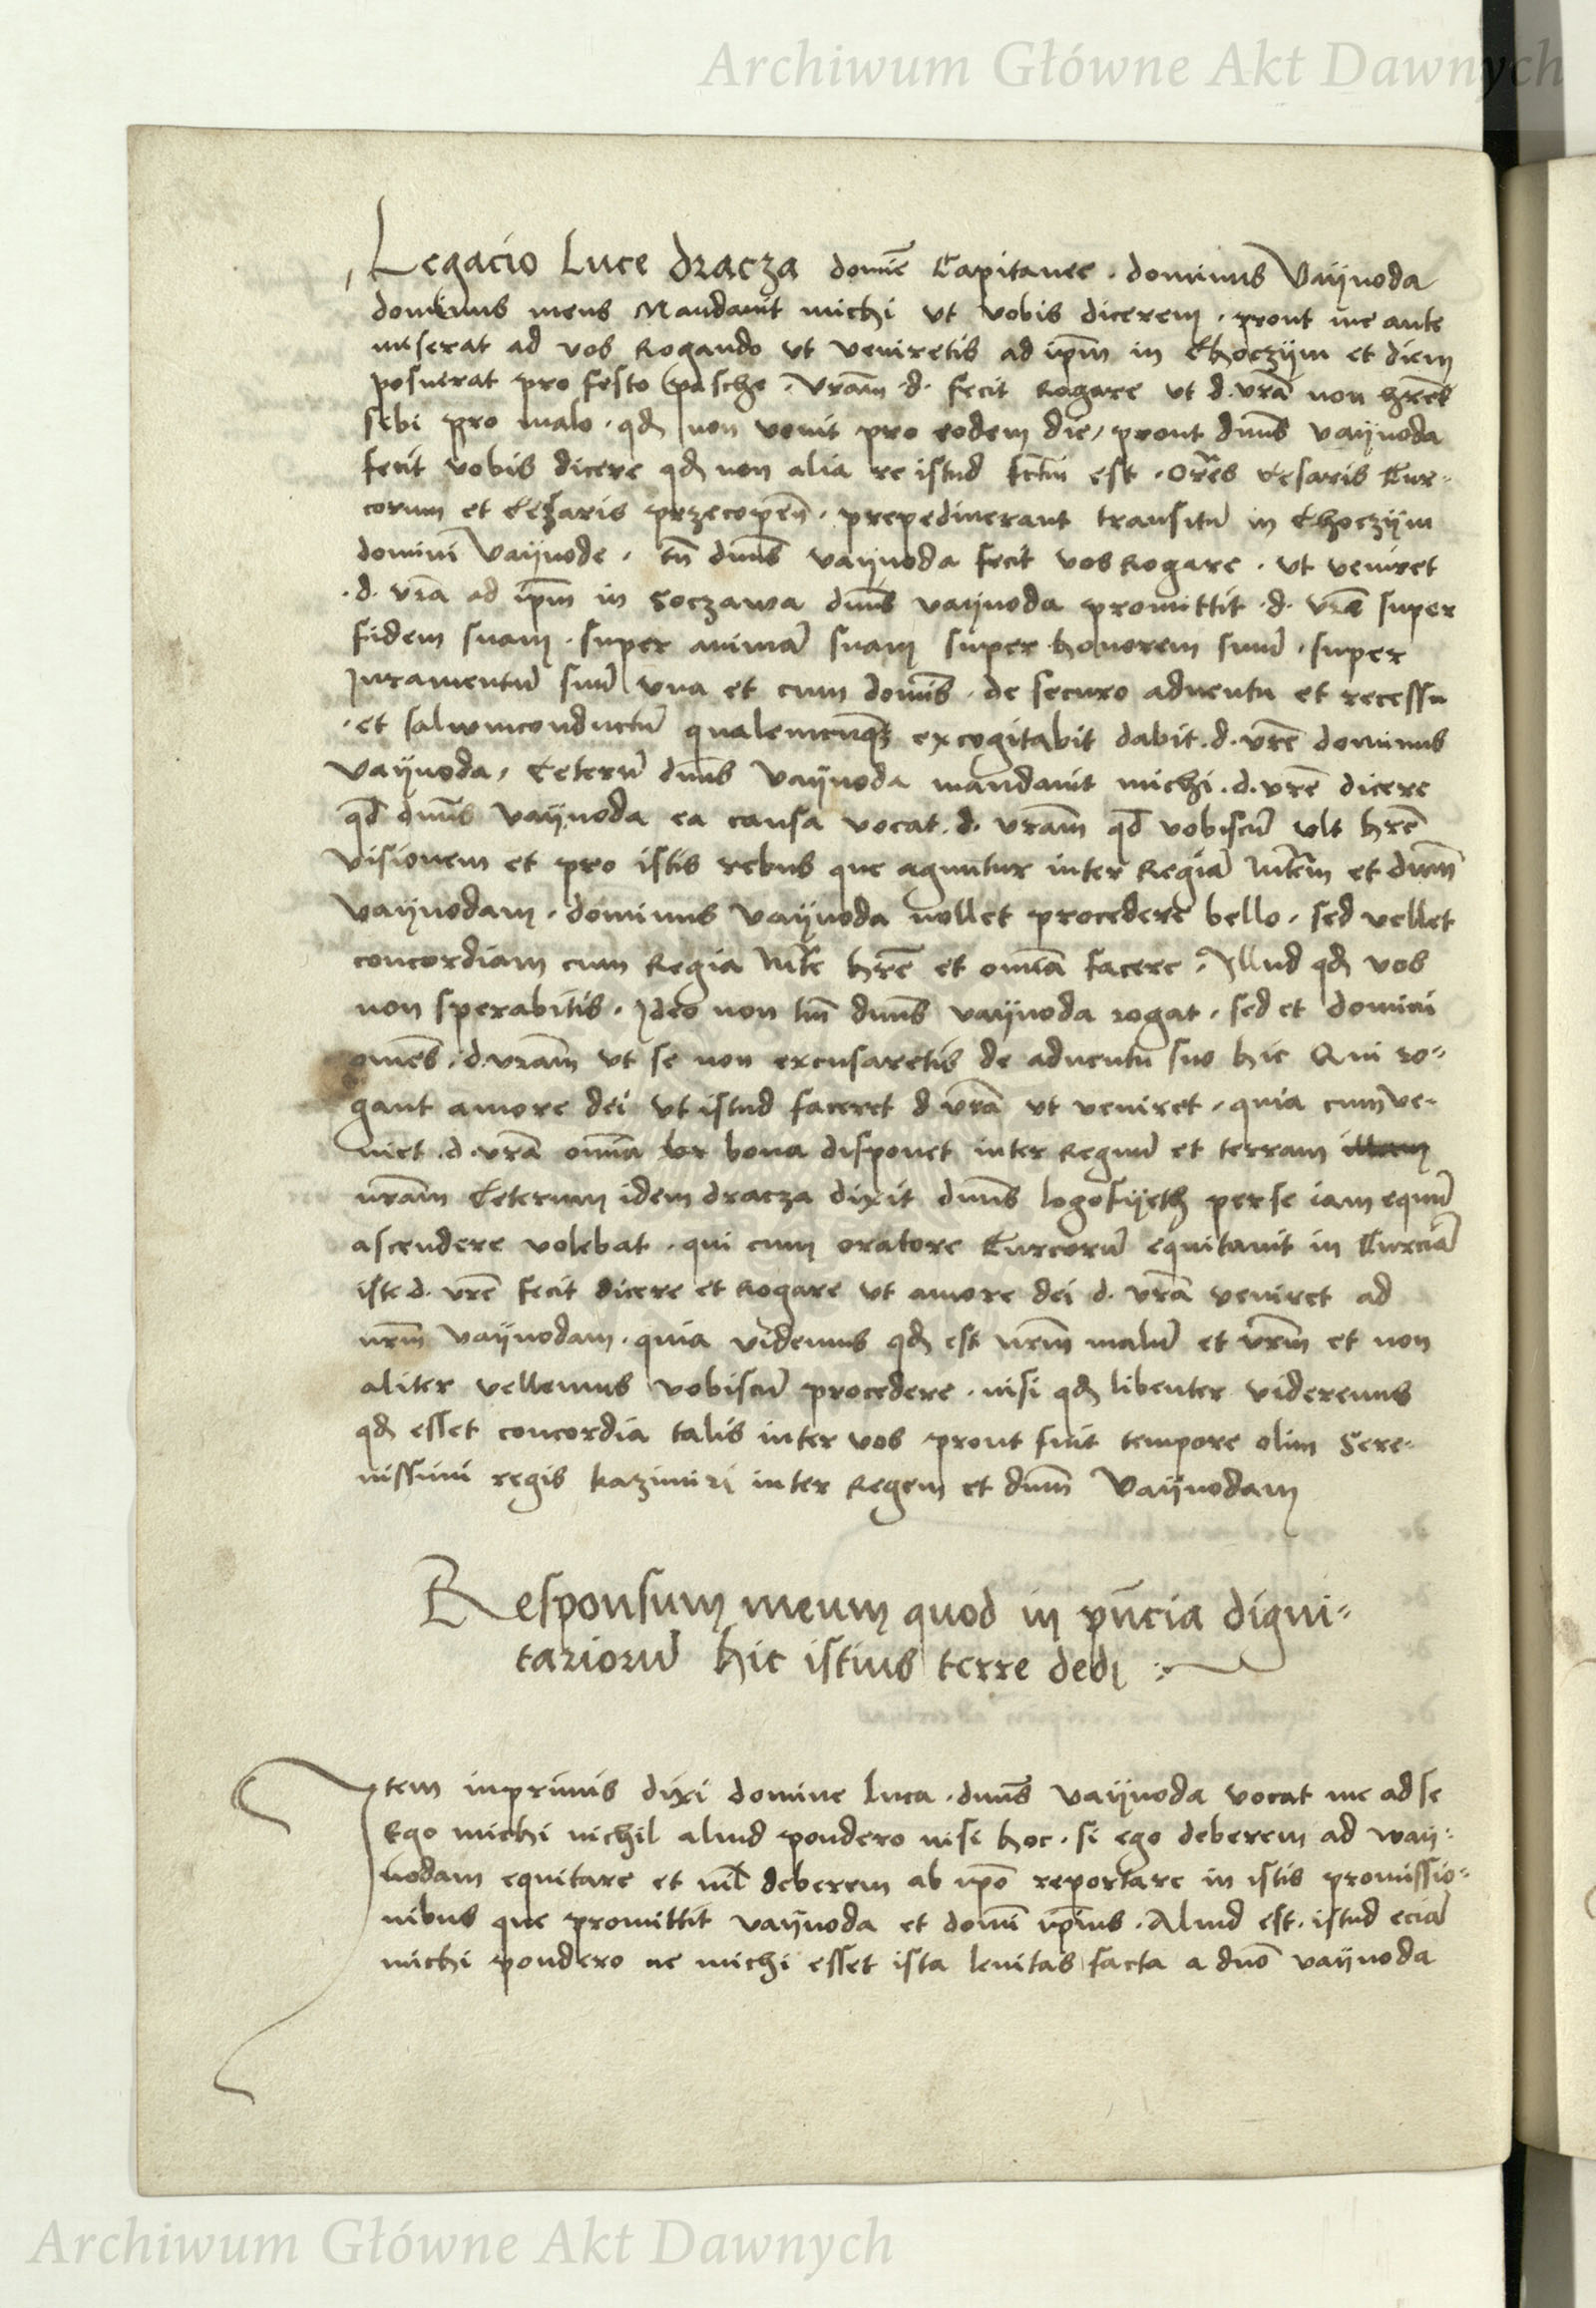 Archiwum Główne Akt Dawnych
Legacio Luce dracza domīe Capitanee . dominus Vaÿvoda
dominus meus Mandavit michi ut vobis dicerem . prout me ante
miserat ad vos Rogando ut veniretis ad ip̄m in Choczÿm et diem
posuerat pro festo pasche . Vr̄am .d. fecit Rogare ut d. vr̄a non hr̄et
sibi pro malo . qđ non venit pro eodem die, prout dn̄us vaÿvoda
fecit vobis dicere qđ non alia re istud fctm̄ est . Or̄es Cesaris Tur-
corum et Cesaris przecopen̄ . prepediverant transitū in Choczÿm
domini Vaÿvode . tn̄ dn̄us vaÿvoda fecit vos Rogare . ut veniret
.d. vr̄a ad ip̄m in Soczawa dn̄us vaÿvoda promittit .d. vr̄e super
fidem suam . super animā suam super honorem suū . super
Juramentū suū una et cum domīs . de securo adventu et recessu
. et salvumconductū qualemcunqꝫ excogitabit dabit .d. vr̄e dominus
Vaÿvoda, Ceterū dn̄us Vaÿvoda mandavit michi .d. vr̄e dicere
qđ dn̄us Vaÿvoda ea causa vocat .d. vr̄am qđ vobiscū vlt hr̄e
visionem et pro istis rebus que aguntur inter Regiā Mtēm et dnm̄
Vaÿvodam . dominus Vaÿvoda nollet procedere bello . sed vellet
concordiam cum Regia Mtē hr̄e et omīa facere . Illud qđ vos
non sperabitis . Ideo non tm̄ dn̄us vaÿvoda rogat . sed et domini
omēs . d. vr̄am ut se non excusaretis de adventu suo hic Qui ro-
gant amore dei ut istud faceret d vr̄a ut veniret . quia cum ve-
niet .d. vr̄a omīa bona disponet inter Regnū et terram
nr̄am Ceterum idem dracza dixit dn̄us logofÿeth per se iam equū
ascendere volebat . qui cum oratore Turcorū equitavit in Turciā
iste d. vr̄e fecit dicere et Rogare ut amore dei d. vr̄a veniret ad
nr̄m Vaÿvodam . quia videmus qđ est nr̄m malū et vr̄m et non
aliter vellemus vobiscū procedere . nisi qđ libenter videremus
qđ esset concordia talis inter vos prout fuit tempore olim Sere-
nissimi regis kazimiri inter Regem et dnm̄ Vaÿvodam
Responsum meum quod in pn̄cia digni-
tariorū hic istius terre dedi
Item inprimis dixi domine Luca . dn̄us Vaÿvoda vocat me ad se
Ego michi nichil aliud pondero nisi hoc . si ego deberem ad waÿ-
vodam equitare et nil deberem ab ip̄o reportare in istis promissio-
nibus que promittit vaÿvoda et domī ip̄ius . Aliud est . istud eciā
michi pondero ne michi esset ista levitas facta a dn̄o vaÿvoda
Archiwum Główne Akt Dawnych